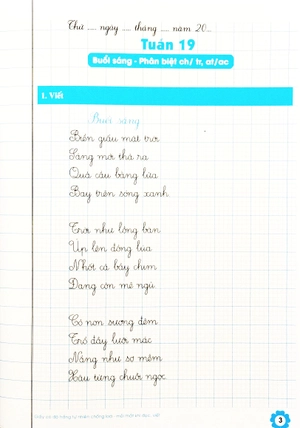 Thứ ... ngày ... tháng ... năm 20...
Tuần 19
Buổi sáng - Phân biệt ch/ tr, at/ac
1. Viết
Buổi sáng
Biển giấu mặt trời
Sáng mới thả ra
Quả cầu bằng lửa
Bay trên sóng xanh
Trời như lồng bàn
Úp lên đồng lúa
Nhốt cả bầy chim
Đang còn mê ngủ
Cỏ non sương đêm
Trổ đầy lưỡi mác
Nắng như sợi mềm
Xâu từng chuỗi ngọc
3